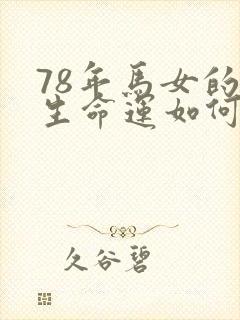 78年马女的
生命运如何
久谷碧